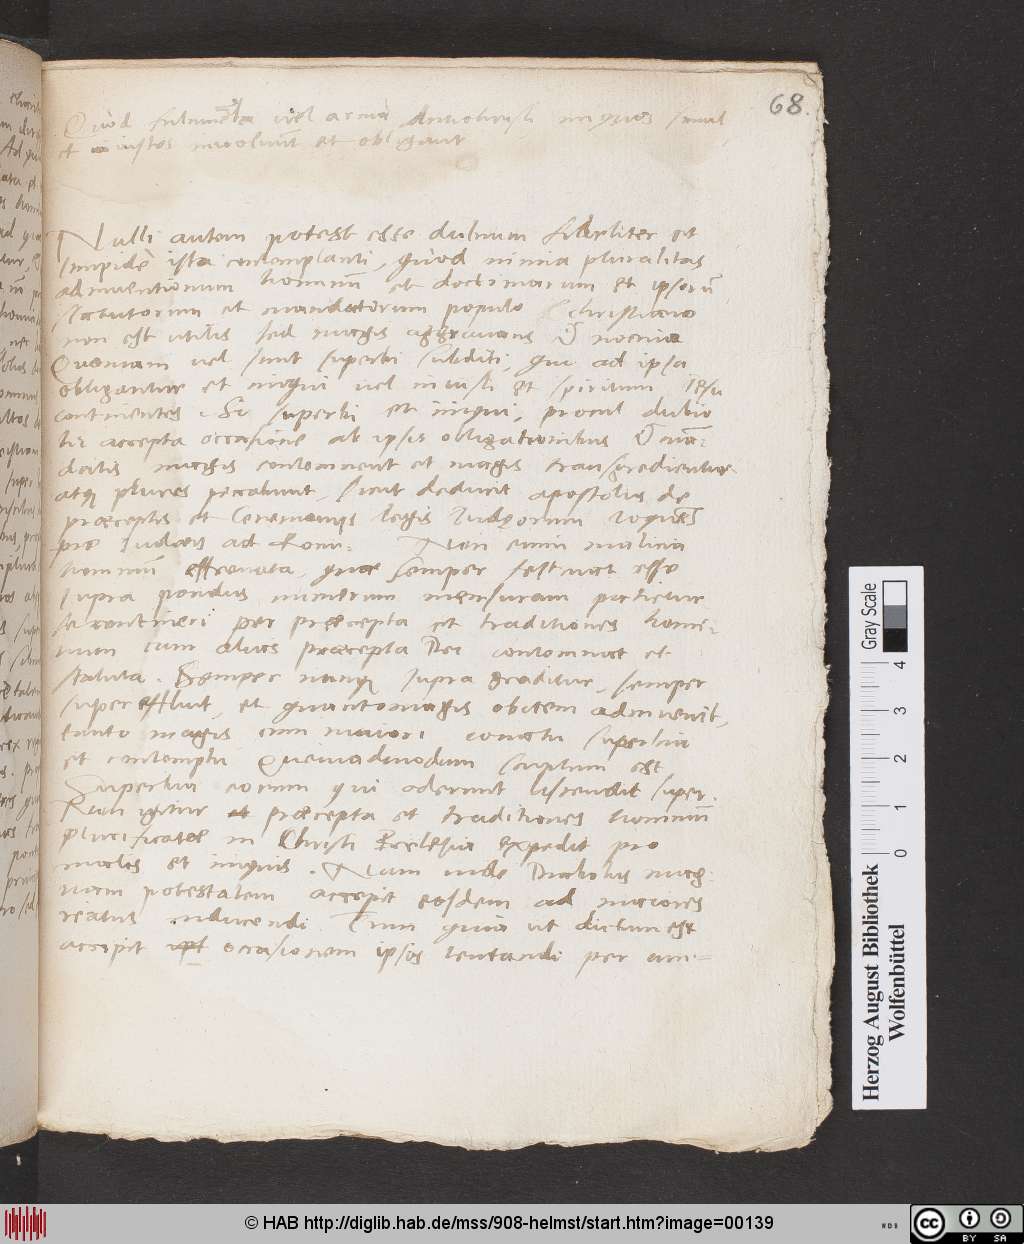 68.
Quod fulminata vel arma Antichristi iniquos simul
et iustos involvunt et obligant
Nulli autem potest esse dubium fideliter et
limpide ista contemplanti, quod nimia pluralitas
adinventionum hominum et doctrinarum et ipsorum
statutorum et mandatorum populo Christiano
non est utilis sed magis aggravans et nociva
Quoniam vel sunt superbi subditi, qui ad ipsa
obligantur et iniqui vel iniusti et spiritum Iesu
continentes. Si superbi et iniqui, procul dubio
hi accepta occasione ab ipsis obligationibus et man-
datis magis contemnent et magis transgredientur
atque plures peccabunt, sicut deducit apostolus de
praeceptis et Ceremoniis legis Iudeorum loquens
pro Iudaeis ad Rom: Non enim malicia
hominum effrenata, quae semper festinat esse
supra pondus numerum mensuram patietur
se contineri per praecepta et traditiones homi-
num cum alias praecepta Dei contemnat et
statuta. Semper namque supra graditur, semper
supereffluit, et quanto magis obicem adinvenit,
tanto magis cum maiori conatu superbia
et contemptu Quemadmodum scriptum est
Superbia eorum qui oderunt ascendit super.
Non igitur praecepta et traditiones hominum
plurificatae in Christi Ecclesia expedit pro
malis et iniquis. Nam inde Diabolus mag:
nam potestatem accepit eosdem ad maiores
reatus inducendi. Tum quia ut dictum est
accipit occasionem ipsos tentandi per am-
4
3
2
1
0
Gray Scale
Herzog August Bibliothek
Wolfenbüttel
© HAB http://diglib.hab.de/mss/908-helmst/start.htm?image=00139
WDB
cc
BY SA